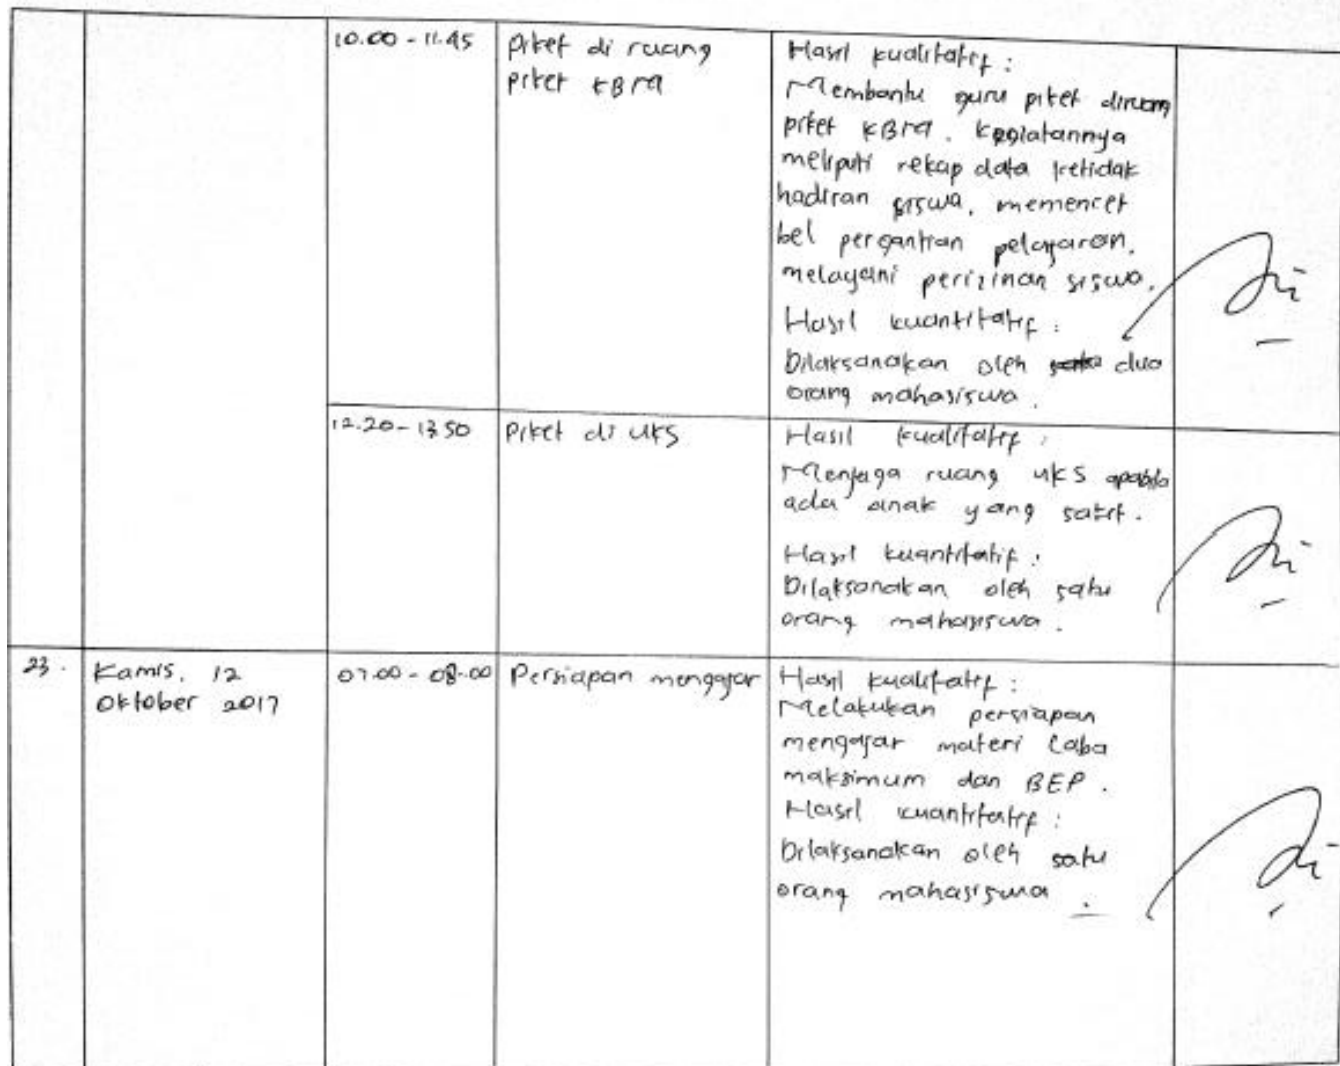 10.00 - 11.45
Piket di ruang
piket KBM
Hasil kualitatif :
Membantu guru piket diruang
piket KBM. Kegiatannya
meliputi rekap data ketidak
hadiran siswa, memencet
bel pergantian pelajaran,
melayani perizinan siswa.
Hasil kuantitatif :
Dilaksanakan oleh dua
orang mahasiswa.
12.20 - 13.50
Piket di UKS
Hasil kualitatif :
Menjaga ruang UKS apabila
ada anak yang sakit.
Hasil kuantitatif :
Dilaksanakan oleh satu
orang mahasiswa.
23.
Kamis, 12
Oktober 2017
07.00 - 08.00
Persiapan mengajar
Hasil kualitatif :
Melakukan persiapan
mengajar materi Laba
maksimum dan BEP.
Hasil kuantitatif :
Dilaksanakan oleh satu
orang mahasiswa.